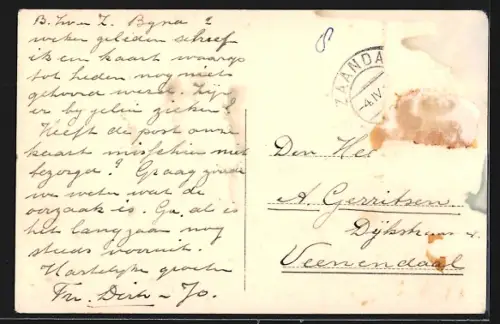 B. Zr. en Z. Byna 2
weken geleden schreef
ik een kaart waarop
tot heden nog niets
gehoord werd. Zijn
er by jelui zieken?
Heeft de post onze
kaart misschien niet
bezorgd? Graag
we weten wat de
oorzaak is. Ga, al is
het langzaam nog
steeds vooruit.
Hartelijke groeten
Fr. Dirk - Jo.
8
ZAANDA
-4.IV
Den Hee
A. Gerritsen
Dijkstraat
Veenendaal